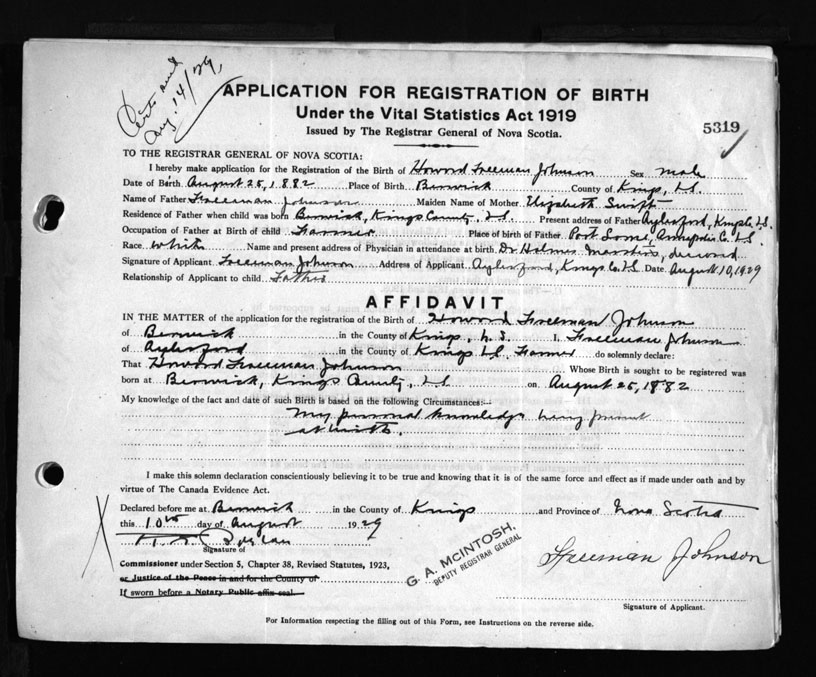 Certs and
Aug. 14/29,
APPLICATION FOR REGISTRATION OF BIRTH
Under the Vital Statistics Act 1919
Issued by The Registrar General of Nova Scotia.
5319
TO THE REGISTRAR GENERAL OF NOVA SCOTIA:
I hereby make application for the Registration of the Birth of Howard Freeman Johnson Sex male
Date of Birth August 25, 1882 Place of Birth Berwick County of Kings, N.S.
Name of Father Freeman Johnson Maiden Name of Mother Elizabeth Swift
Residence of Father when child was born Berwick, Kings County, N.S. Present address of Father Aylesford, Kings Co. N.S.
Occupation of Father at Birth of child Farmer Place of birth of Father Port Lorne, Annapolis Co. N.S.
Race White Name and present address of Physician in attendance at birth Dr Holmes Masters, deceased
Signature of Applicant Freeman Johnson Address of Applicant Aylesford, Kings Co. N.S. Date August 10, 1929
Relationship of Applicant to child Father
AFFIDAVIT
IN THE MATTER of the application for the registration of the Birth of Howard Freeman Johnson
of Berwick in the County of Kings, N.S. I, Freeman Johnson
of Aylesford in the County of Kings N.S., Farmer do solemnly declare:
That Howard Freeman Johnson Whose Birth is sought to be registered was
born at Berwick, Kings County, N.S. on August 25, 1882
My knowledge of the fact and date of such Birth is based on the following Circumstances:—
My personal knowledge being present
at birth.
I make this solemn declaration conscientiously believing it to be true and knowing that it is of the same force and effect as if made under oath and by
virtue of The Canada Evidence Act.
Declared before me at Berwick in the County of Kings and Province of Nova Scotia
this 10th day of August 1929
Signature of
Commissioner under Section 5, Chapter 38, Revised Statutes, 1923,
or Justice of the Peace in and for the County of
If sworn before a Notary Public affix seal.
G. A. McINTOSH,
DEPUTY REGISTRAR GENERAL
Freeman Johnson
Signature of Applicant.
For Information respecting the filling out of this Form, see Instructions on the reverse side.